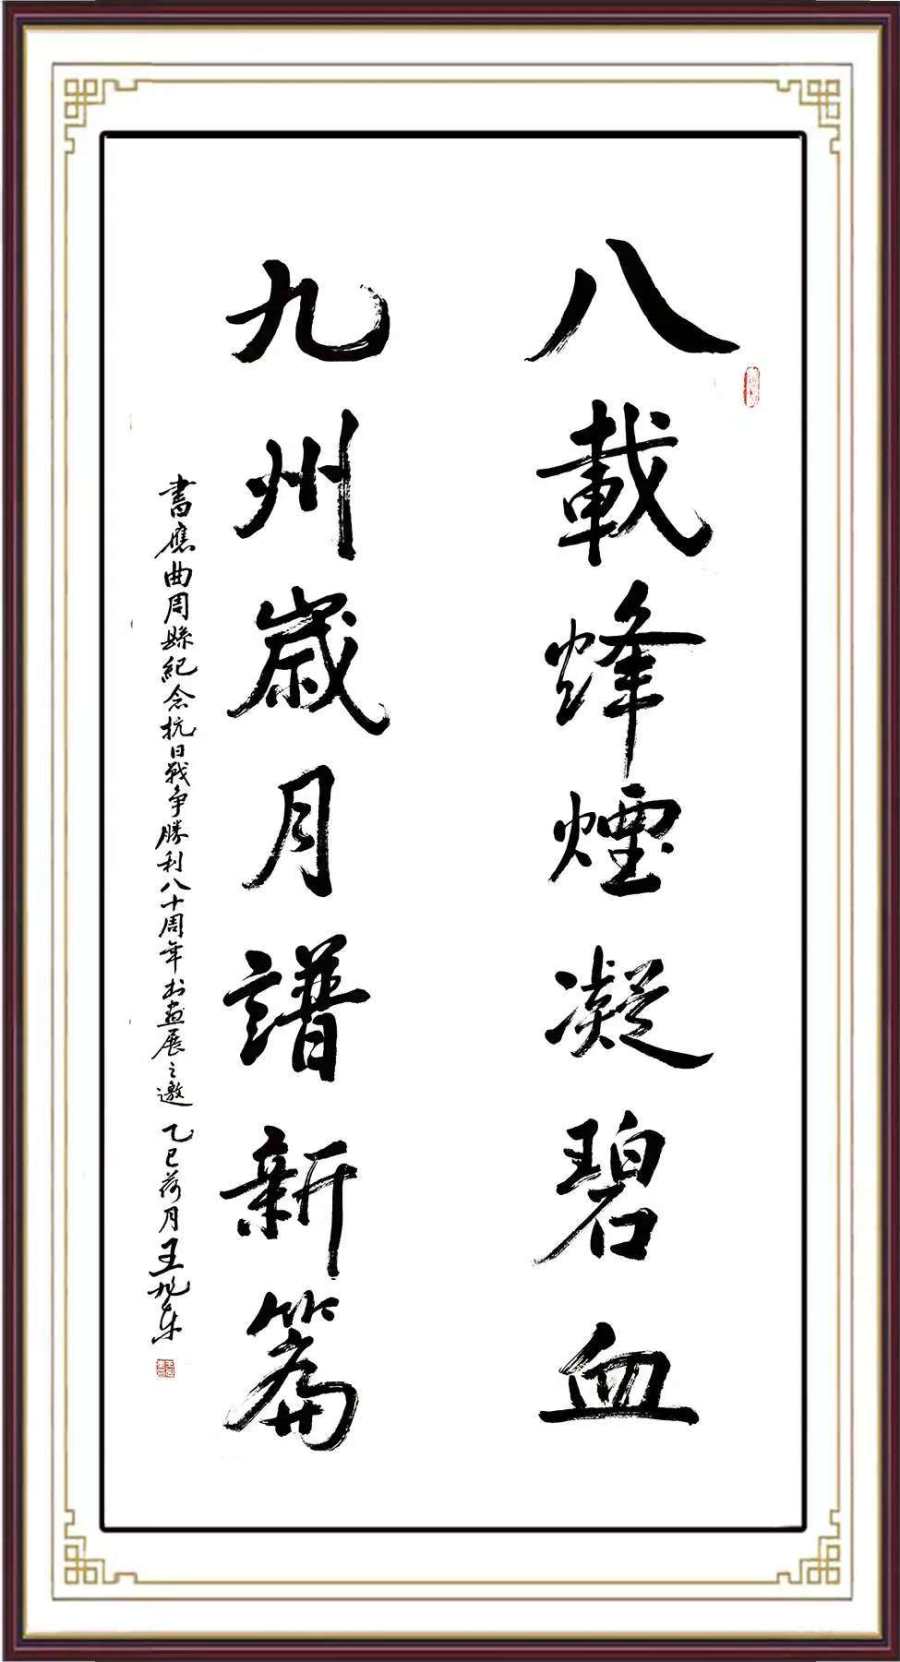 八載烽煙凝碧血
九州歲月譜新篇
書應曲周縣紀念抗日戰争勝利八十周年书畫展之邀 乙巳荷月王旭东